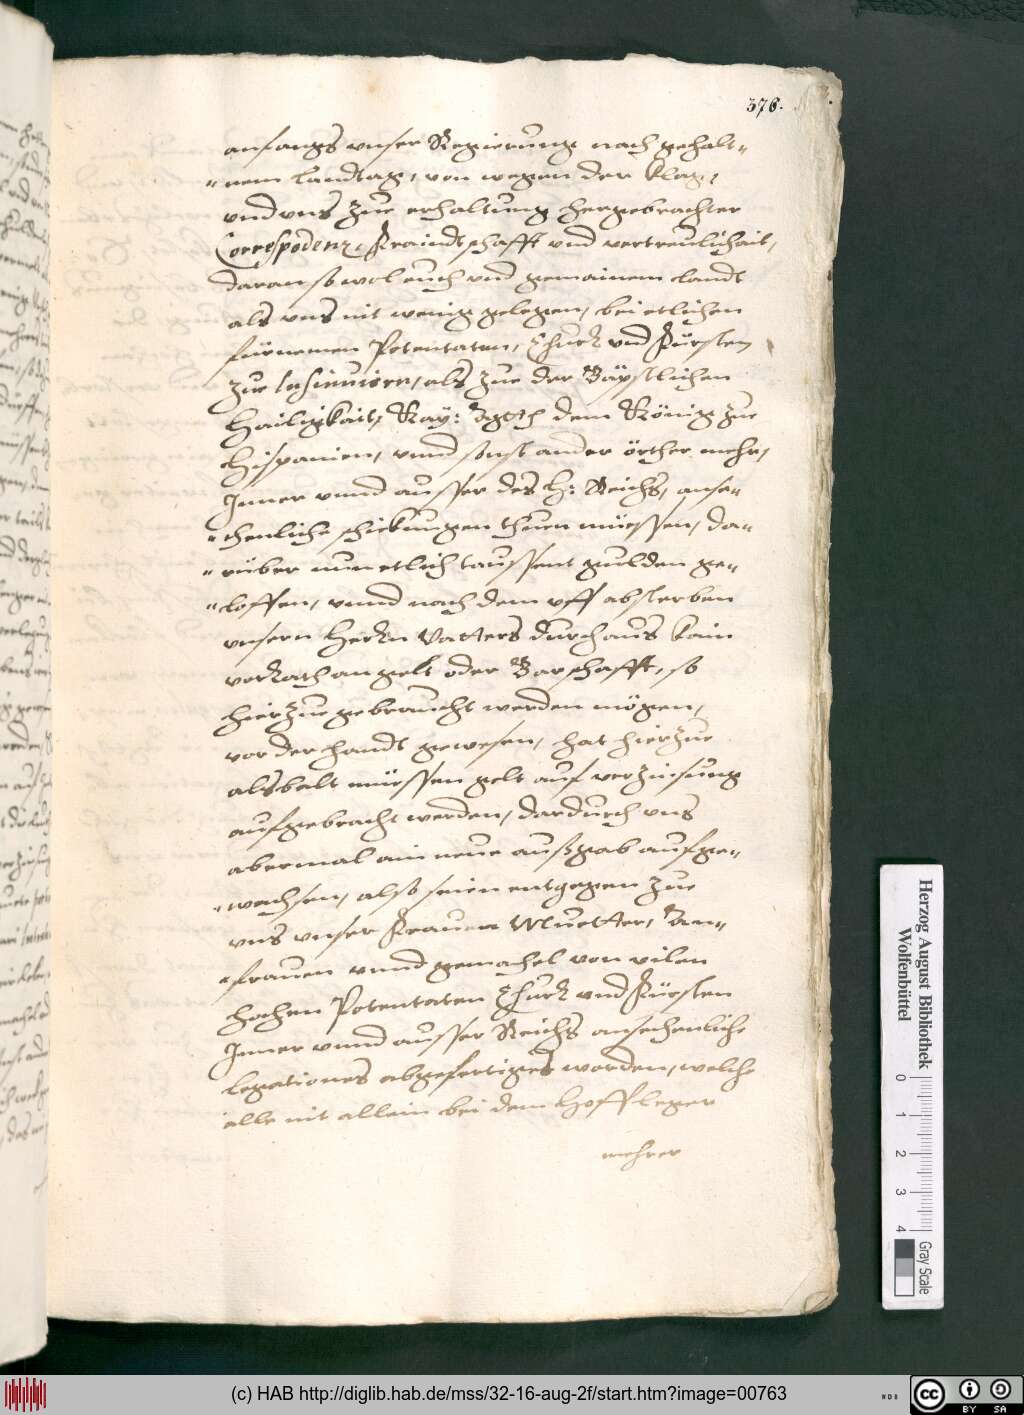 376.
anfangs vnser Regierung nach gehalt=
=nem Landtag, von wegen der Klag,
vnd vns zue erhaltung hergebrachter
Correspodenz, Fraindtschafft vnd vertreulichait,
daran so wol euch vnd gemainem Landt
als vns nit wenig gelegen, bei etlichen
fürnemen Potentaten, Churf. vnd Fürsten
zue Insinuiern, als zue der Bäpstlichen
Hailigkait, Kay: Mtt. dem König zue
Hispanien, vnnd sonst ander örther mehr,
Inner vnnd ausser des H: Reichs, anse=
=chenliche schickungen thuen müessen, da=
=rüber nun etlich taussent gulden ge=
=loffen, vnnd nach dem vff absterben
vnsern Herrn Vatters durchaus kain
vorrath an gelt oder Barschafft, so
hierzue gebraucht werden mögen,
vor der handt gewesen, hat hierzue
alsbalt müessen gelt auf verzinsung
aufgebracht werden, dardurch vns
abermal ain neue außgab aufge=
=wachsen, also seien entgegen zue
vns vnser Frauen Muetter, An=
=frauen vnnd gemachel von vilen
hohen Potentaten Churf. vnd Fürsten
Inner vnnd ausser Reichs ansechenliche
legationes abgefertiget worden, welche
alle nit allein bei dem Hoffleger
mehrer
Herzog August Bibliothek
Wolfenbüttel
0 1 2 3 4
Gray Scale
(c) HAB http://diglib.hab.de/mss/32-16-aug-2f/start.htm?image=00763
cc BY SA